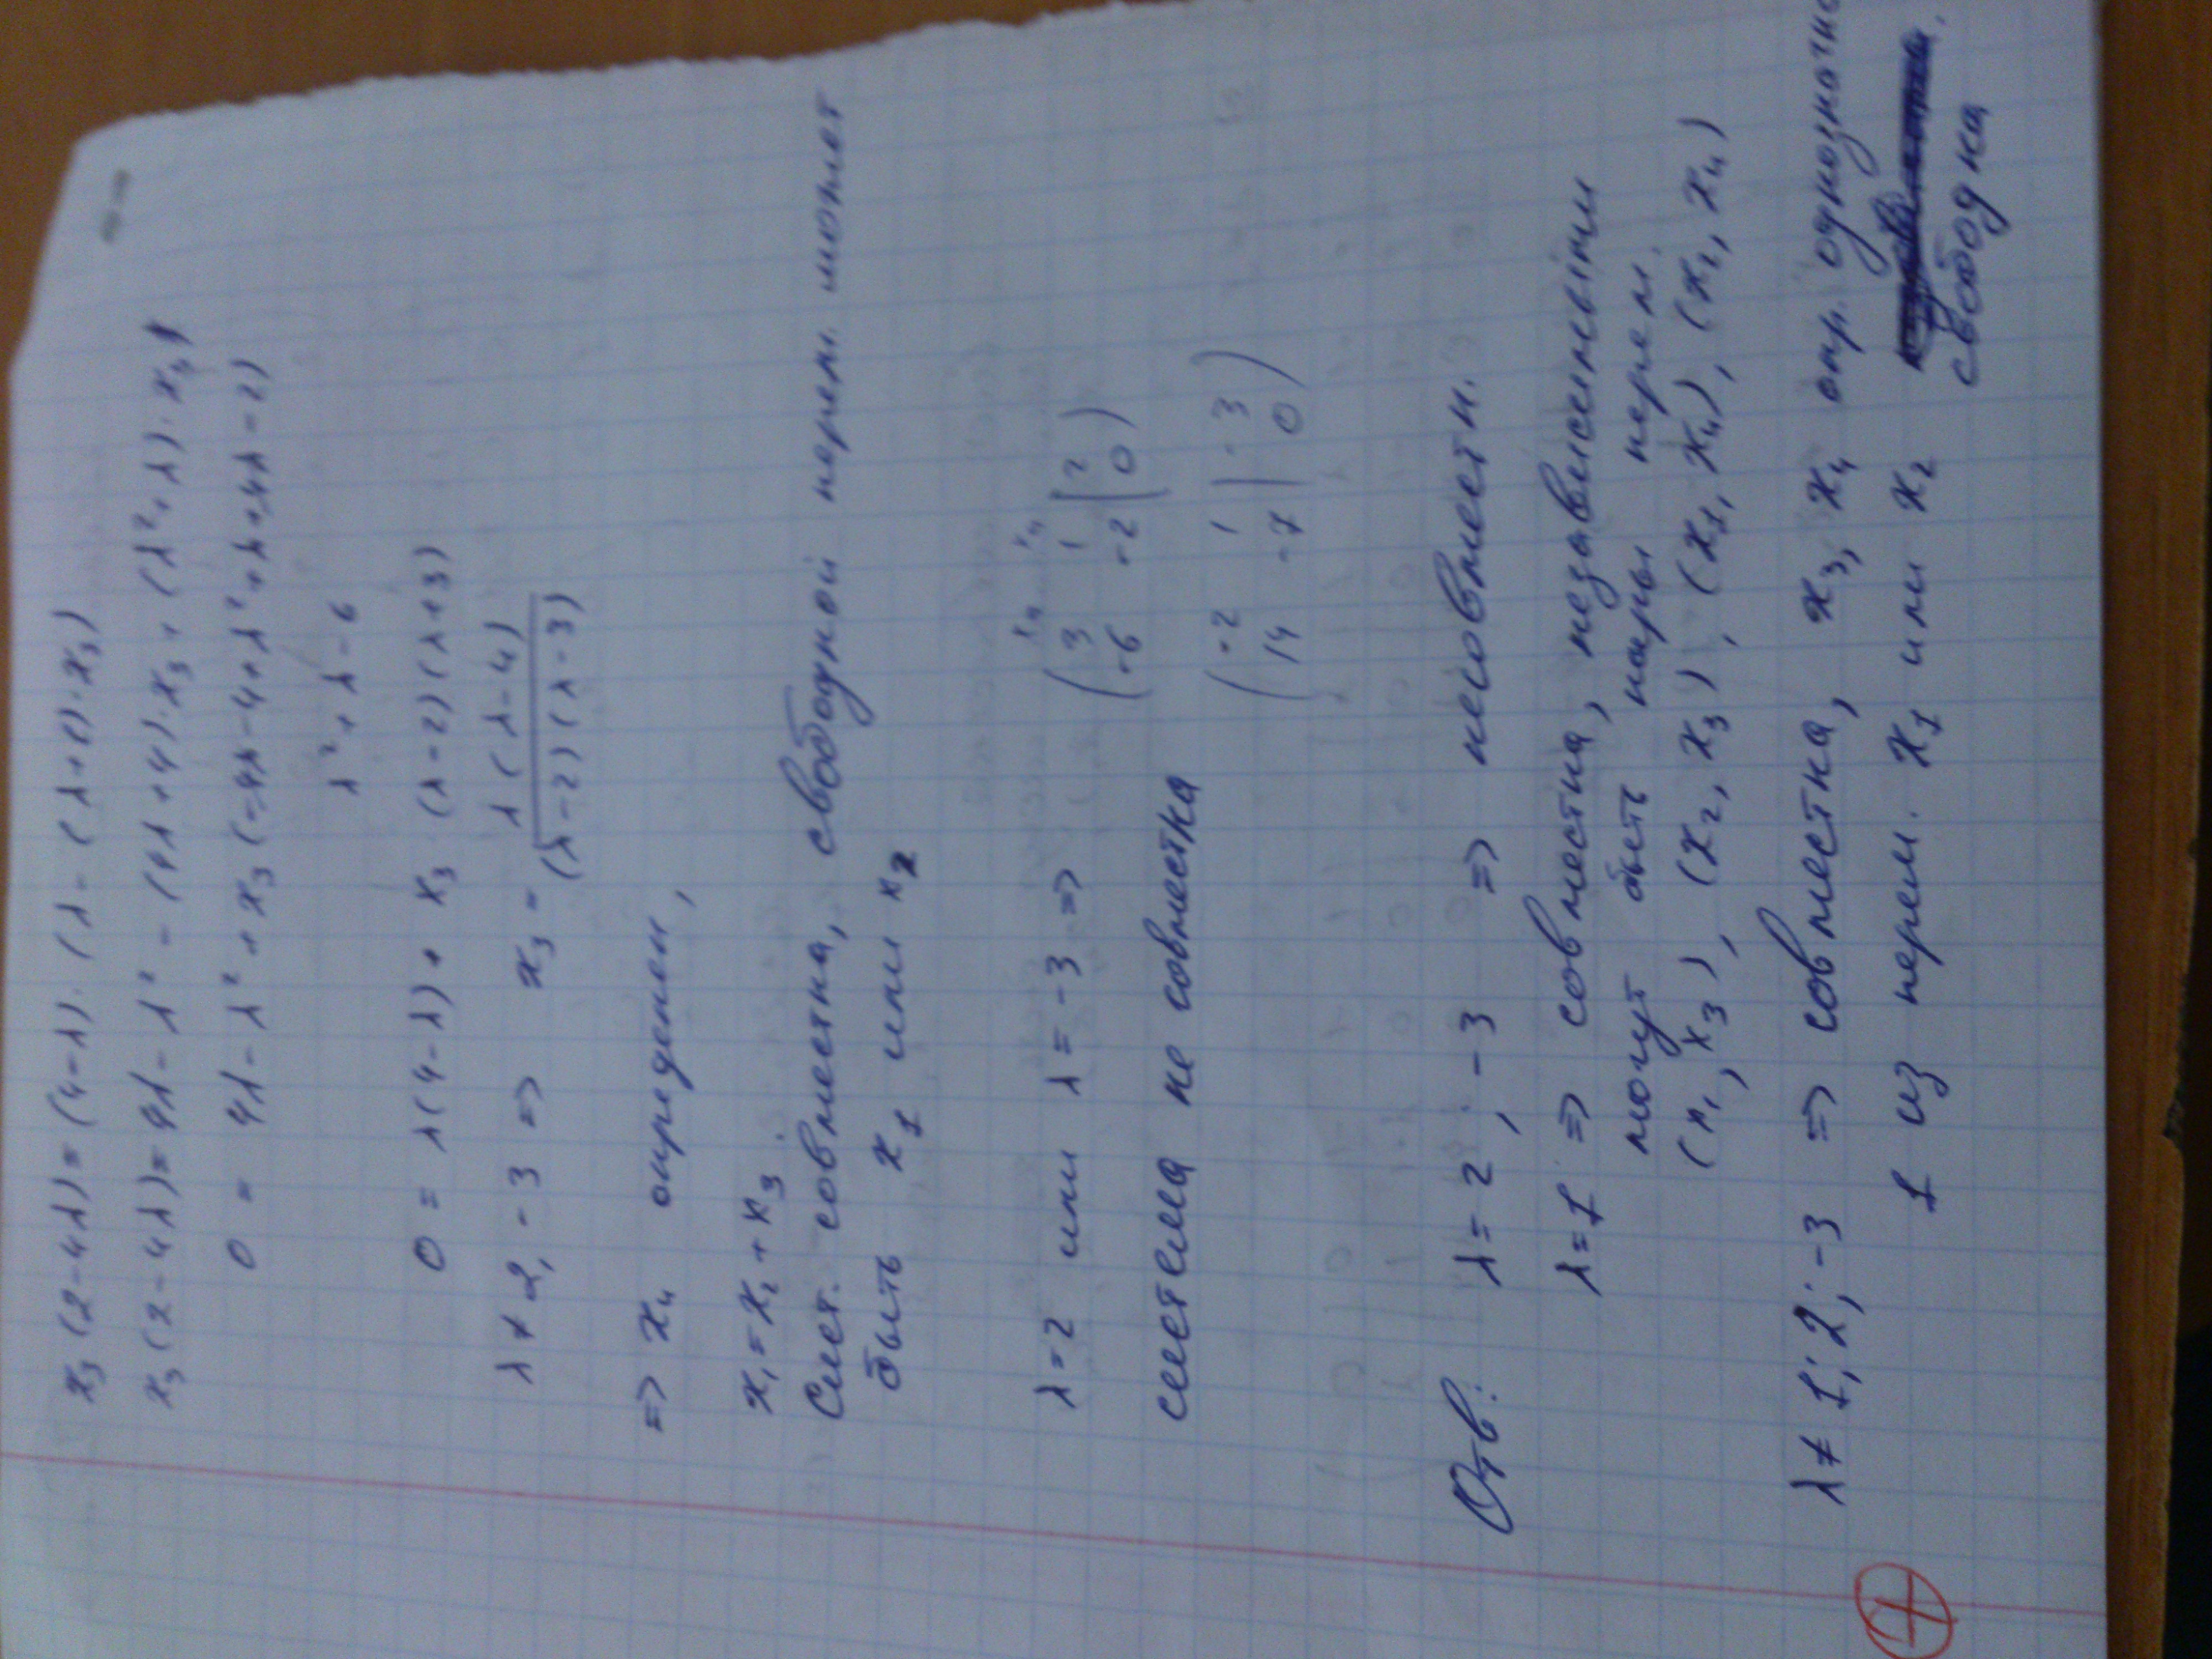 x₃(2-4λ)=(4-λ)·(λ-(λ+1)·x₃)
x₃(2-4λ)=4λ-λ²-(4λ+4)·x₃+(λ²+λ)·x₃
0 = 4λ-λ²+x₃(-4λ-4+λ²+λ+4λ-2)
λ²+λ-6
0 = λ(4-λ)+x₃·(λ-2)(λ+3)
λ≠2,-3 => x₃= λ(λ-4) / (λ-2)(λ-3)
=> x₄ определен,
x₁=x₂+x₃
Сист. совместна, свободной перем. может
быть x₁ или x₂
x₄ x₄
λ=2 или λ=-3 => (3 1 | 2
-6 -2 | 0)
система не совместна (-2 1 | -3
14 -7 | 0)
Отв: λ=2, -3 => несовместн.
λ=1 => совместна, независимыми
могут быть пары перем.
(x₁, x₃), (x₂, x₃), (x₁, x₄), (x₂, x₄)
λ≠1; 2; -3 => совместна, x₃, x₄ опр. однозначно
1 из перем. x₁ или x₂
свободна